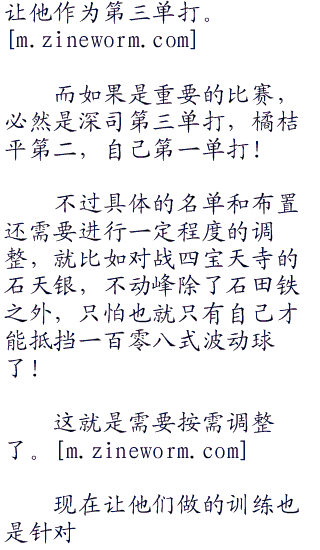 让他作为第三单打。
[m.zineworm.com]
而如果是重要的比赛，
必然是深司第三单打，橘桔
平第二，自己第一单打！
不过具体的名单和布置
还需要进行一定程度的调
整，就比如对战四宝天寺的
石天银，不动峰除了石田铁
之外，只怕也就只有自己才
能抵挡一百零八式波动球
了！
这就是需要按需调整
了。[m.zineworm.com]
现在让他们做的训练也
是针对